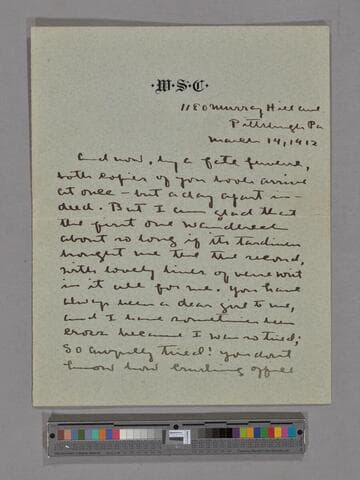 ·W·S·C·
1180 Murray Hill Ave
Pittsburgh Pa
March 14, 1912
And now, by a fate perverse,
both copies of your book arrive
at once – but a day apart in-
deed. But I am glad that
the first one wandered
about so long if its tardiness
brought me the second,
with lovely lines of verse writ
in it all for me. You have
always been a dear girl to me,
and I have sometimes been
cross because I was so tired;
so awfully tired! You don't
know how crushing office